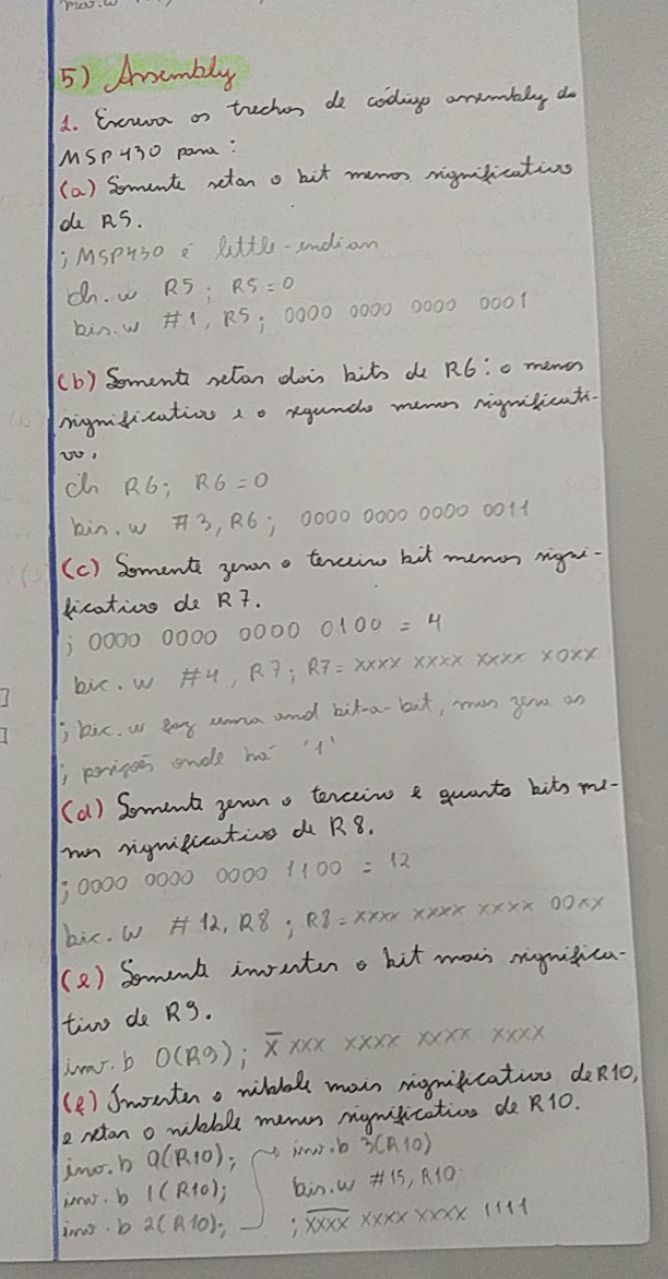 mov.w
5) Assembly
1. Escreva os trechos de código assembly do
MSP430 para:
(a) Somente setar o bit menos significativo
de R5.
; MSP430 é little-endian
clr.w R5; R5=0
bis.w #1, R5; 0000 0000 0000 0001
(b) Somente setar dois bits de R6: o menos
significativo e o segundo menos significati-
vo.
clr R6; R6=0
bis.w #3, R6; 0000 0000 0000 0011
(c) Somente zerar o terceiro bit menos signi-
ficativo de R7.
; 0000 0000 0000 0100 = 4
bic.w #4, R7; R7= xxxx xxxx xxxx x0xx
; bic.w faz uma and bit-a-bit, mas zera as
; posições onde há '1'
(d) Somente zerar o terceiro e quarto bits me-
nos significativo de R8.
; 0000 0000 0000 1100 = 12
bic.w #12, R8; R8= xxxx xxxx xxxx 00xx
(e) Somente inverter o bit mais significa-
tivo de R9.
inv.b 0(R9); x̅ xxx xxxx xxxx xxxx
(f) Inverter o nibble mais significativo de R10,
e setar o nibble menos significativo de R10.
inv.b 0(R10); inv.b 3(R10)
inv.b 1(R10); bis.w #15, R10
inv.b 2(R10); ; x̅x̅x̅x̅ xxxx xxxx 1111